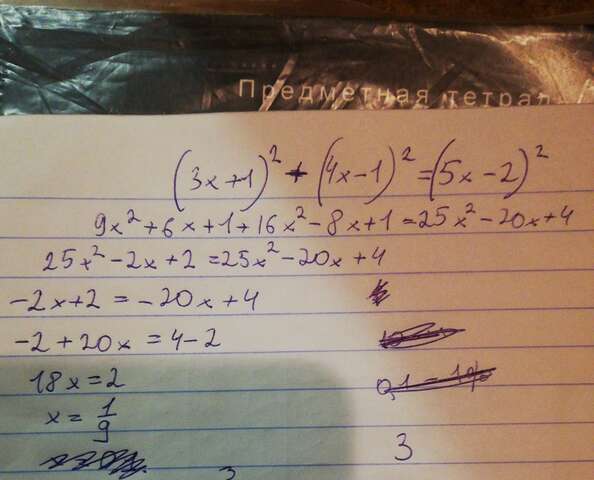 Предметная тетрад
(3x+1)² + (4x-1)² = (5x-2)²
9x²+6x+1+16x²-8x+1=25x²-20x+4
25x²-2x+2=25x²-20x+4
-2x+2=-20x+4
-2+20x=4-2
18x=2
x=1/9
3